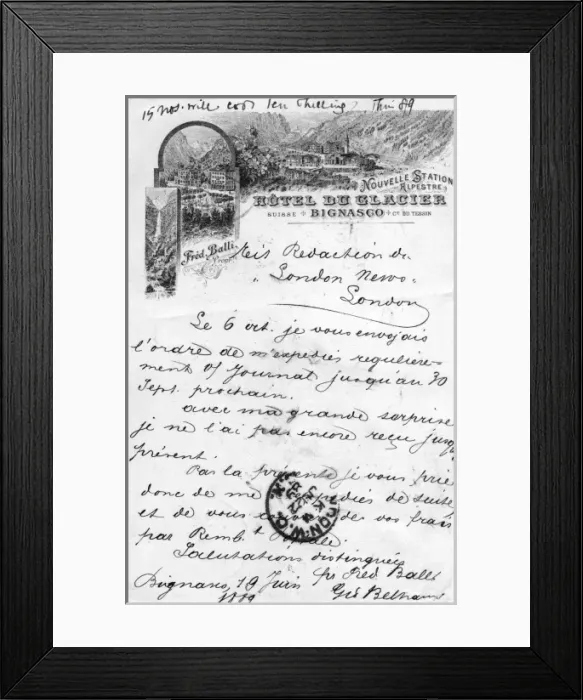 15 nos. will cost ten shilling
NOUVELLE STATION
ALPESTRE
HÔTEL DU GLACIER
SUISSE BIGNASCO Ct. DU TESSIN
Fréd. Balli
Redaction du
London News
London
Le 6 oct. je vous envojais
l'ordre de m'expedies regulière-
ment Journal jusqu'au 30
Sept. prochain.
avec ma grande surprise
je ne l'ai pas encore reçu jusq'
présent.
Par la présente je vous prie
donc de me de suite
et de vous de vos frais
par Remb.t
Salutations distinguées
Bignasco, 19 Juin pr Fred Balli
1889